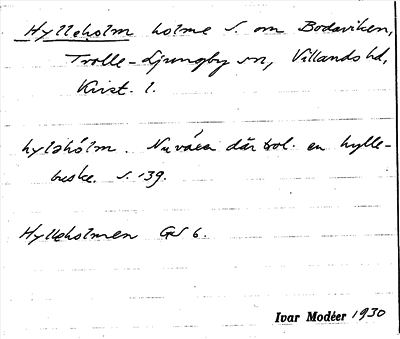 Hylleholm holme S. om Bodaviken,
Trolle-Ljungby sn, Villands hd,
Krist. l.
hyləhólm. Nuväxer där bol. en hylle-
buske. S. 139.
Hylleholmen GS 6.
Ivar Modéer 1930